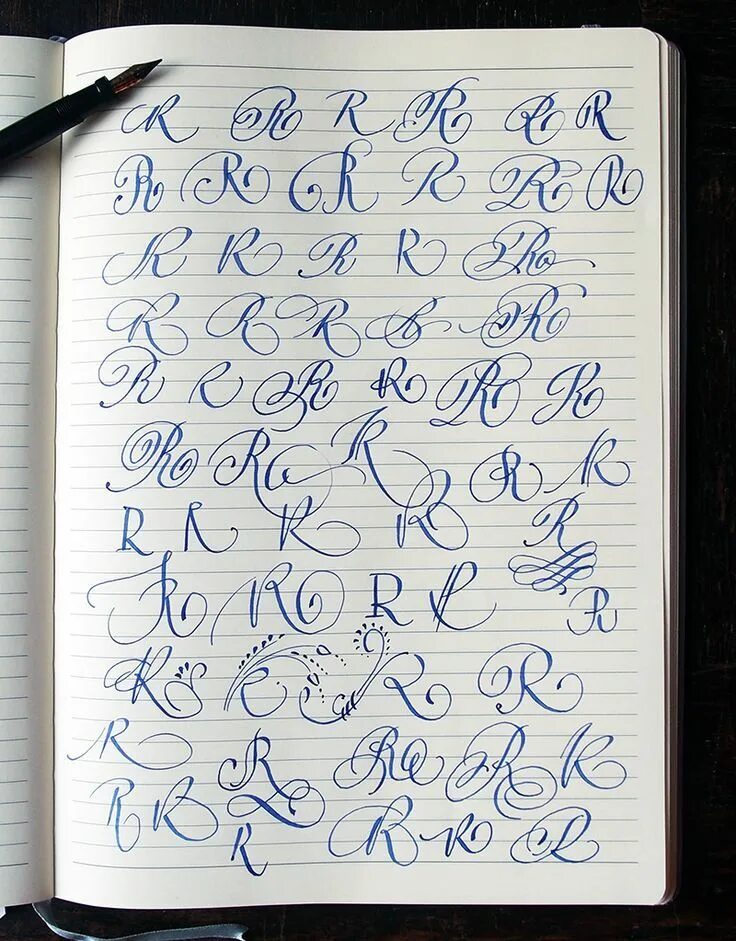 R R R R R R
R R R R R R
R R R R R
R R R R R
R R R R R R
R R R R R
R R R R R
R R R R R
R R R R
R R R R R
R R R R R R